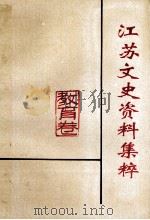 江苏文史资料集粹
教育卷